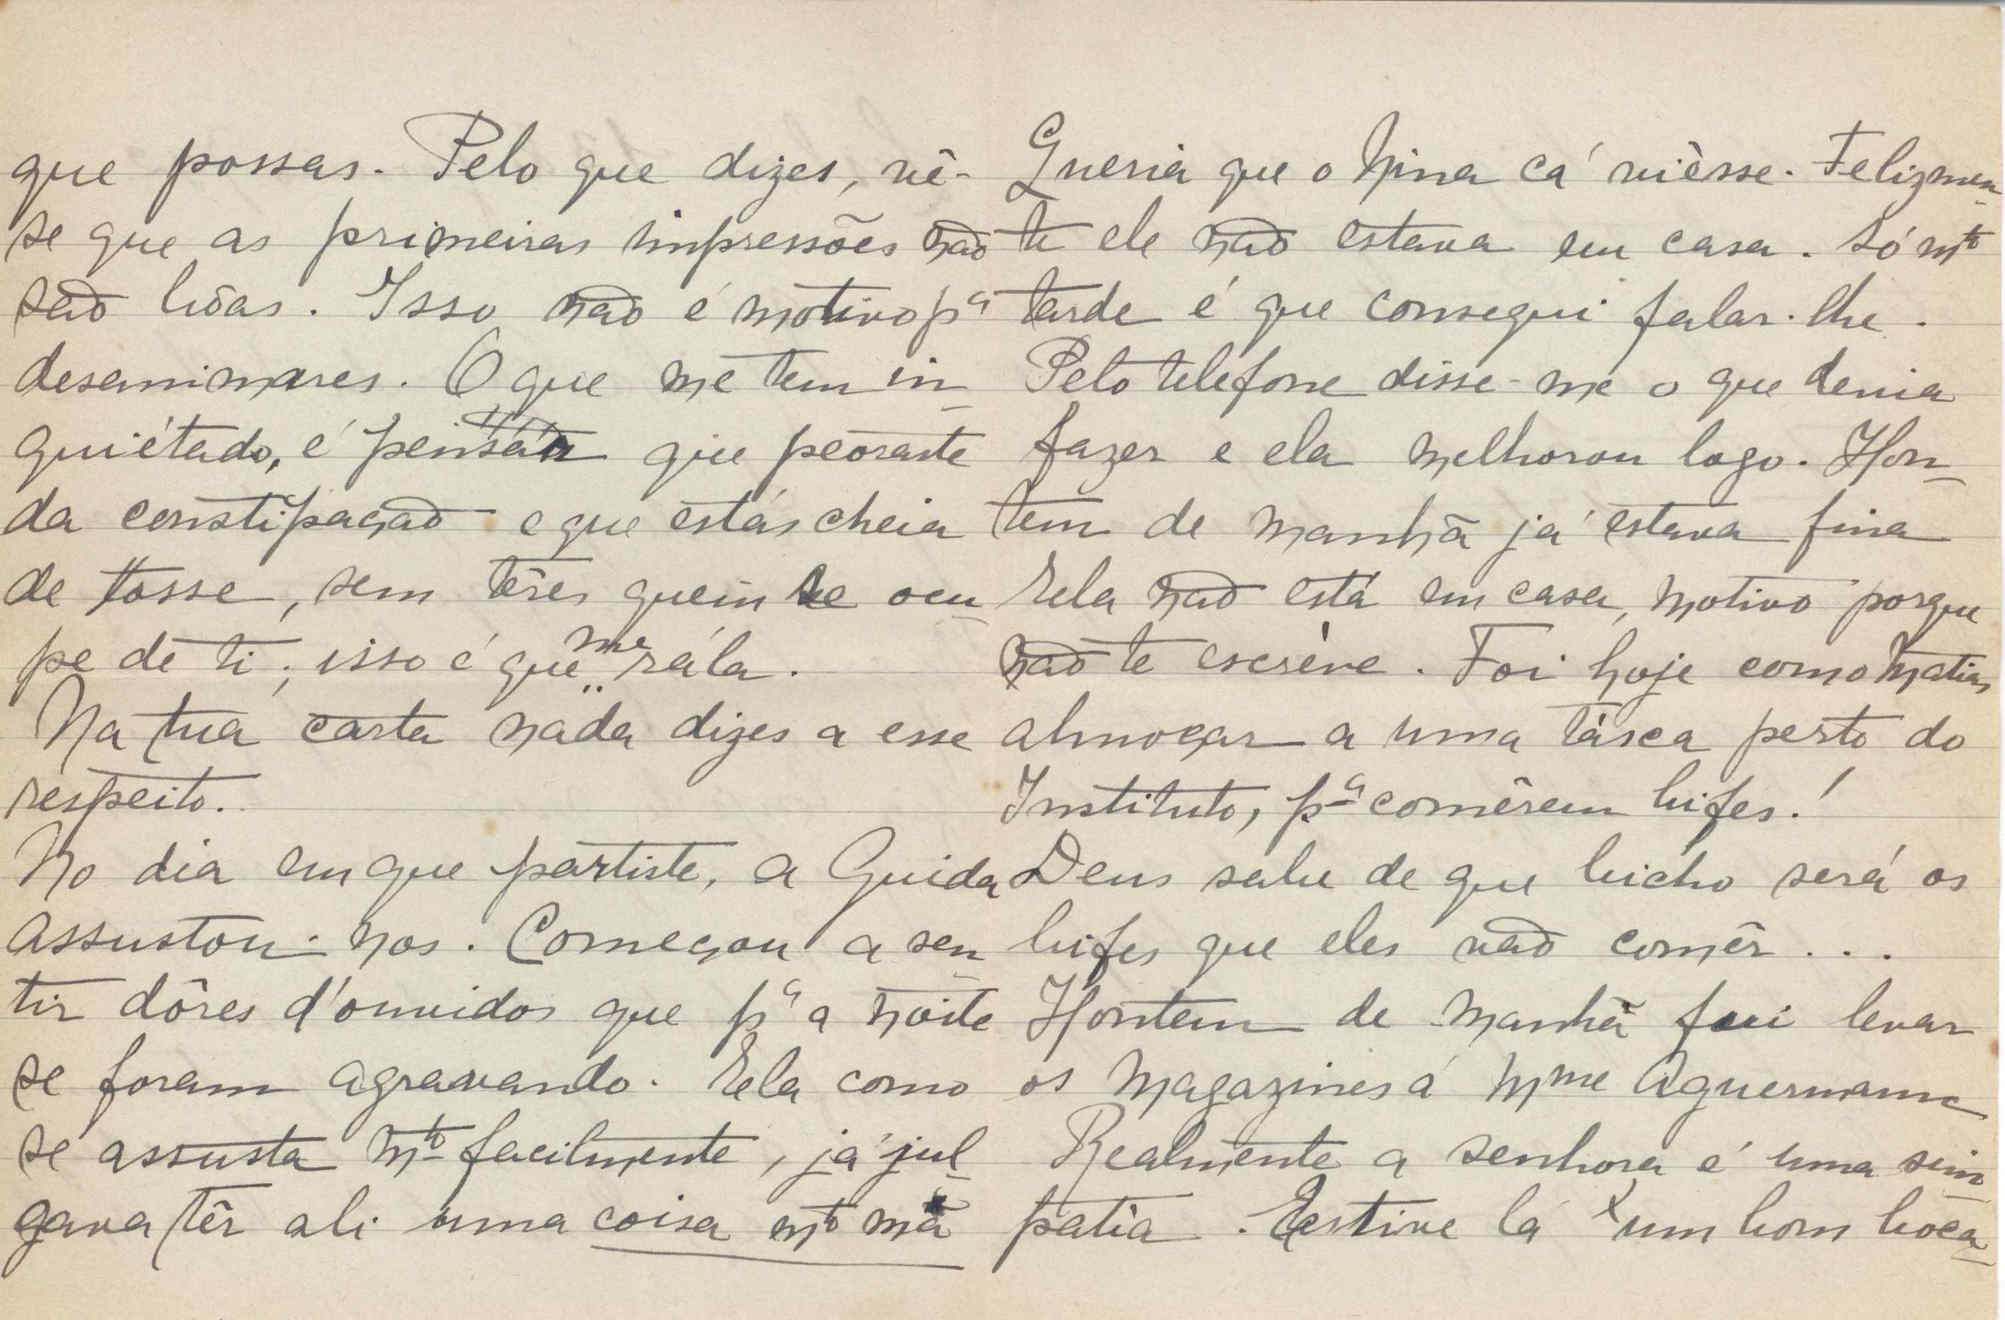 que possas. Pelo que dizes, vê-
se que as primeiras impressões não
são bôas. Isso não é motivo pª
desanimares. O que me tem in-
quiétado, é pensár que peoraste
da constipação e que estás cheia
de tosse, sem têres quem se ocu-
pe de ti; isso é que me rála.
Na tua carta nada dizes a esse
respeito.
No dia em que partiste, a Guida
assustou-nos. Começou a sen-
tir dôres d'ouvidos que pª a noite
se foram agravando. Ela como
se assusta mto facilmente, já jul-
gava têr ali uma coisa mto má
Queria que o Nina cá viésse. Felizmen-
te ele não estava em casa. Só mto
tarde é que consegui falar-lhe.
Pelo telefone disse-me o que devia
fazer e ela melhorou logo. Hon-
tem de manhã já estava fina
Ela não está em casa, motivo porque
não te escréve. Foi hoje com o Matias
almoçar a uma tásca perto do
Instituto, pª comêrem bifes!
Deus sabe de que bicho será os
bifes que eles vão comêr...
Hontem de manhã fui levar
os Magazines á Mme Aguermann
Realmente a senhora é uma sim-
patia. Estive lá um bom boca-